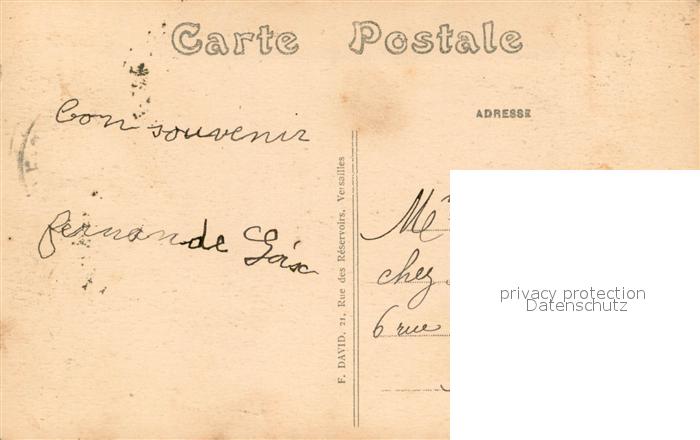 Carte Postale
bon souvenir
fernande
ADRESSE
F. DAVID, 21, Rue des Réservoirs, Versailles
chez
6 rue
privacy protection
Datenschutz